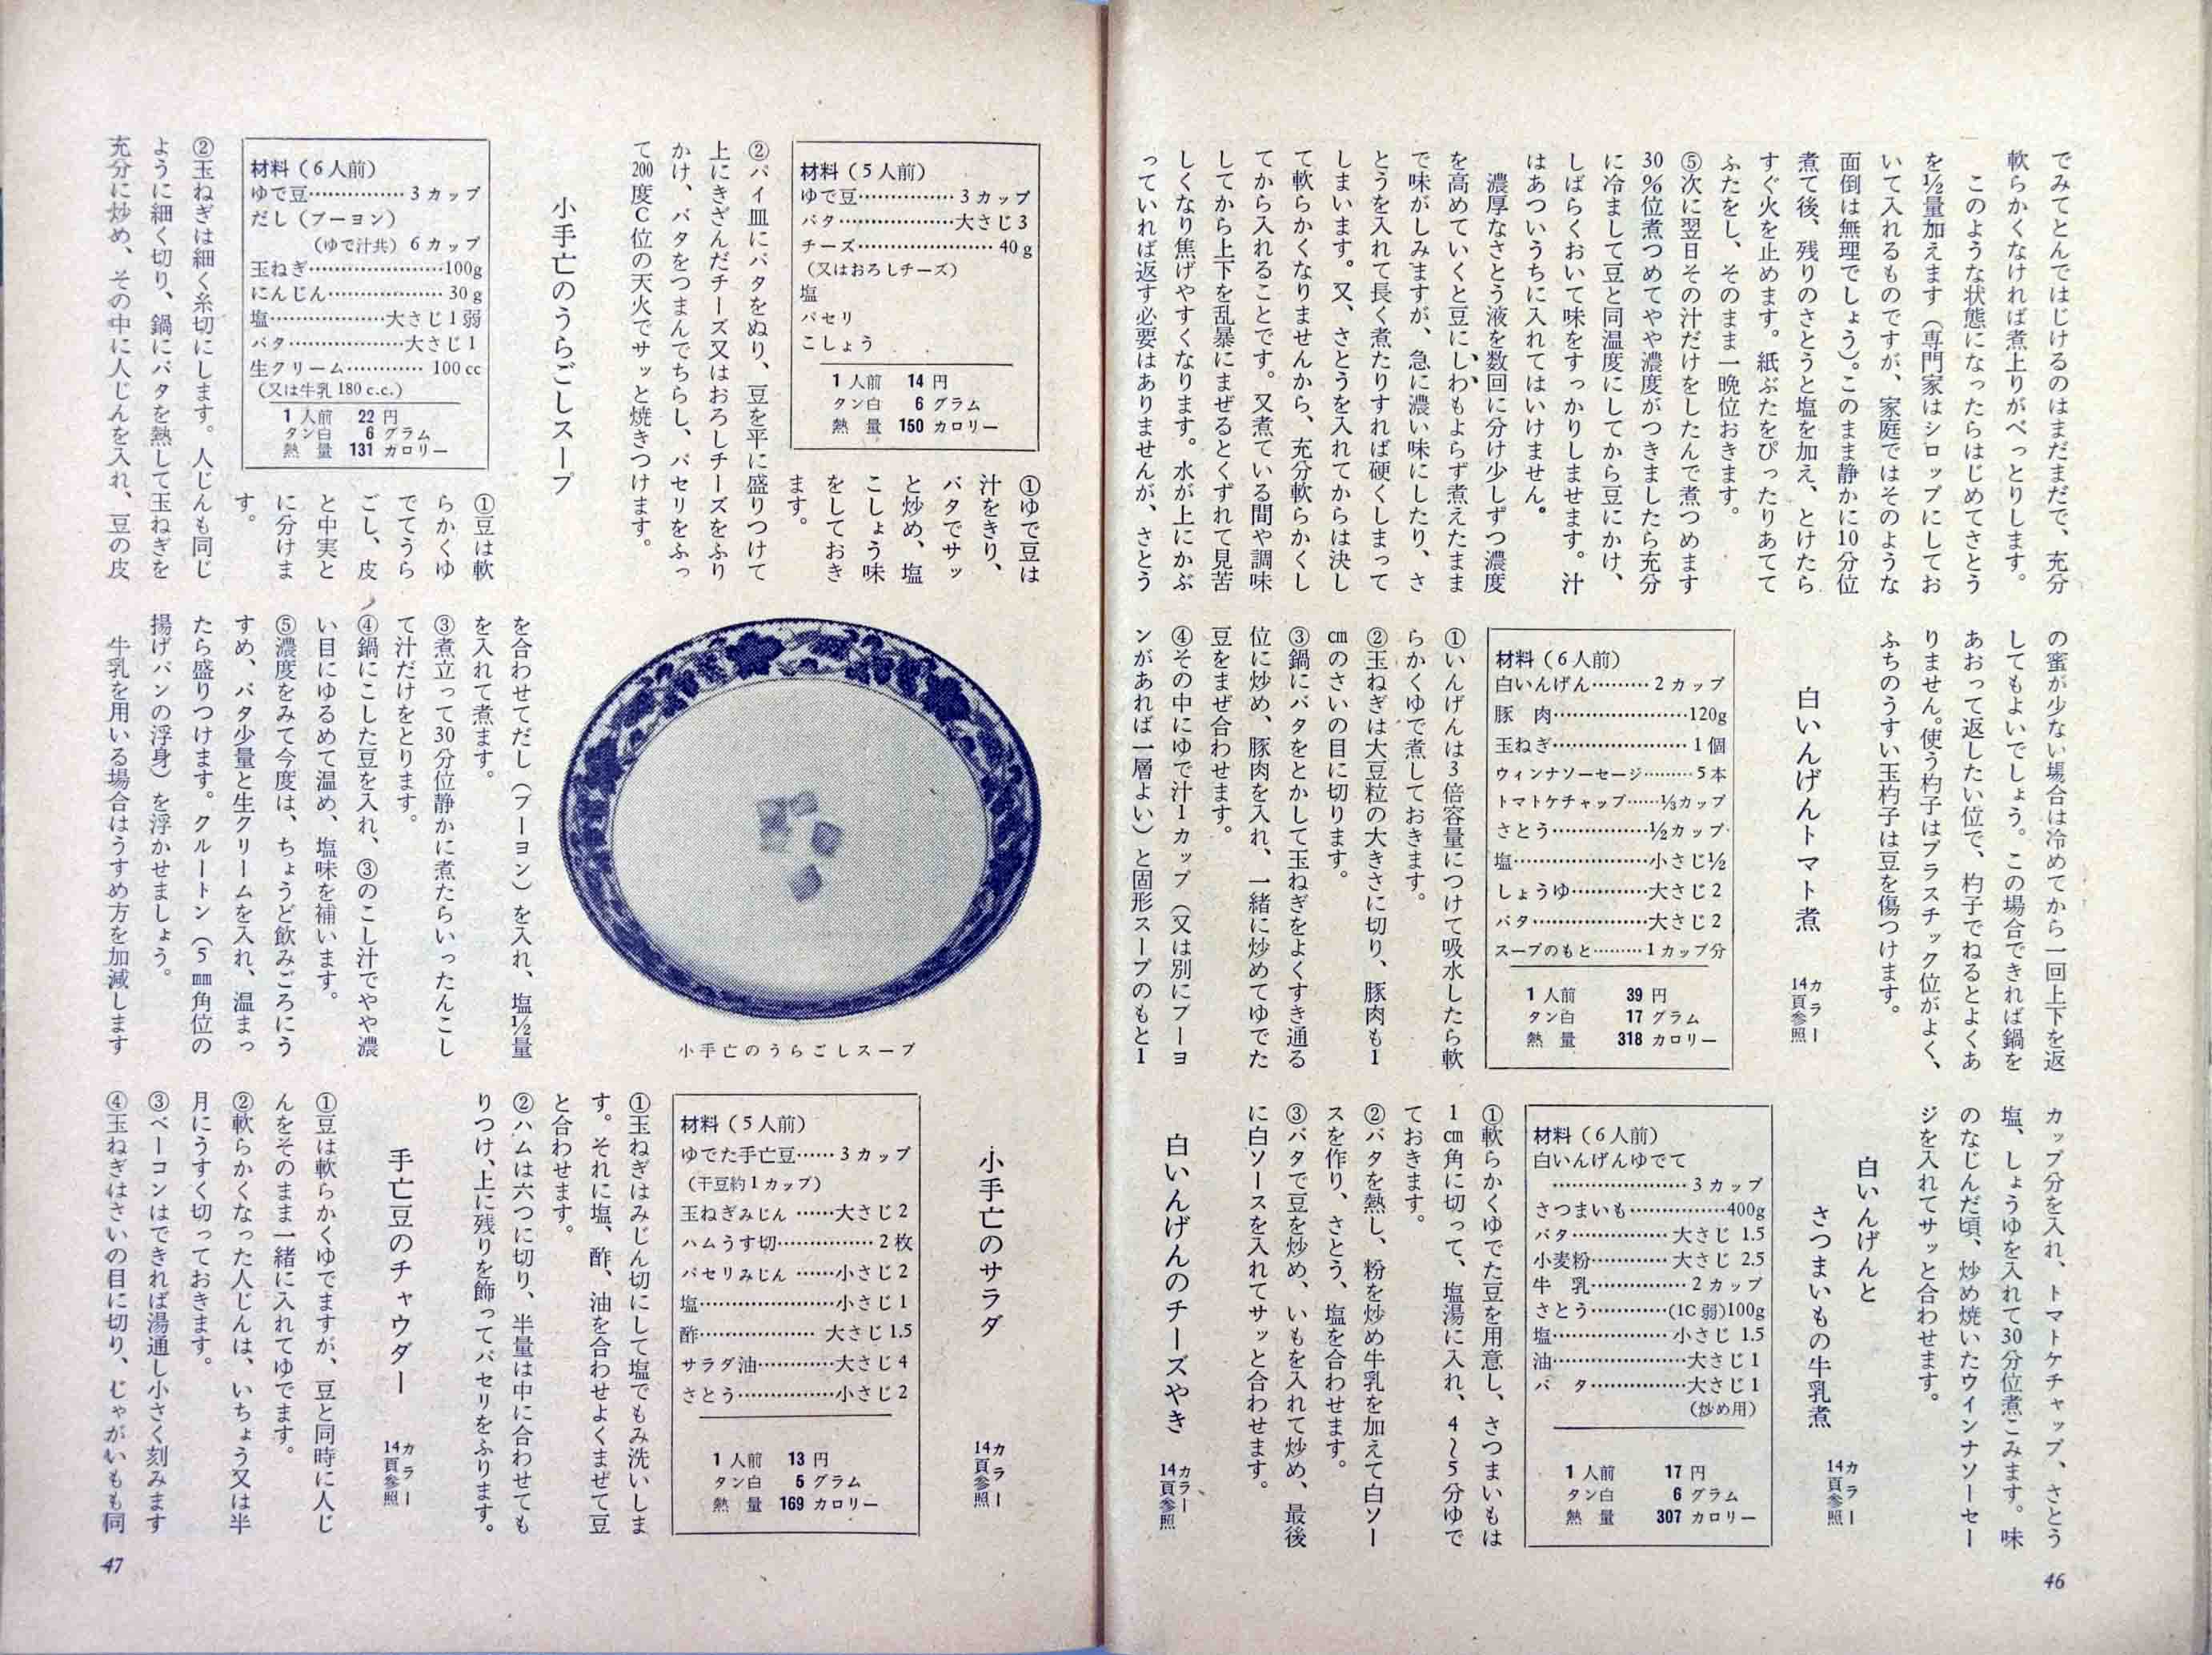 でみてとんではじけるのはまだまだで、充分
軟らかくなければ煮上りがべっとりします。
このような状態になったらはじめてさとう
を½量加えます（専門家はシロップにしてお
いて入れるものですが、家庭ではそのような
面倒は無理でしょう）。このまま静かに10分位
煮て後、残りのさとうと塩を加え、とけたら
すぐ火を止めます。紙ぶたをぴったりあてて
ふたをし、そのまま一晩位おきます。
⑤次に翌日その汁だけをしたんで煮つめます
30％位煮つめてやや濃度がつきましたら充分
に冷まして豆と同温度にしてから豆にかけ、
しばらくおいて味をすっかりしませます。汁
はあついうちに入れてはいけません。
濃厚なさとう液を数回に分け少しずつ濃度
を高めていくと豆にしわもよらず煮えたまま
で味がしみますが、急に濃い味にしたり、さ
とうを入れて長く煮たりすれば硬くしまって
しまいます。又、さとうを入れてからは決し
て軟らかくなりませんから、充分軟らかくし
てから入れることです。又煮ている間や調味
してから上下を乱暴にまぜるとくずれて見苦
しくなり焦げやすくなります。水が上にかぶ
っていれば返す必要はありませんが、さとう
の蜜が少ない場合は冷めてから一回上下を返
してもよいでしょう。この場合できれば鍋を
あおって返したい位で、杓子でねるとよくあ
りません。使う杓子はプラスチック位がよく、
ふちのうすい玉杓子は豆を傷つけます。
白いんげんトマト煮
カラー
14頁参照
材料（6人前）
白いんげん………2カップ
豚　肉…………………120g
玉ねぎ…………………1個
ウィンナソーセージ………5本
トマトケチャップ……⅓カップ
さとう……………½カップ
塩…………………小さじ½
しょうゆ…………大さじ2
バタ………………大さじ2
スープのもと………1カップ分
1人前　39円
タン白　17グラム
熱　量　318カロリー
①いんげんは3倍容量につけて吸水したら軟
らかくゆで煮しておきます。
②玉ねぎは大豆粒の大きさに切り、豚肉も1
cmのさいの目に切ります。
③鍋にバタをとかして玉ねぎをよくすき通る
位に炒め、豚肉を入れ、一緒に炒めてゆでた
豆をまぜ合わせます。
④その中にゆで汁1カップ（又は別にブーヨ
ンがあれば一層よい）と固形スープのもと1
カップ分を入れ、トマトケチャップ、さとう
塩、しょうゆを入れて30分位煮こみます。味
のなじんだ頃、炒め焼いたウインナソーセー
ジを入れてサッと合わせます。
白いんげんと
さつまいもの牛乳煮
カラー
14頁参照
材料（6人前）
白いんげんゆでて
…………………3カップ
さつまいも……………400g
バタ……………大さじ1.5
小麦粉…………大さじ2.5
牛　乳……………2カップ
さとう…………(1C弱)100g
塩………………小さじ1.5
油…………………大さじ1
バ　タ……………大さじ1
（炒め用）
1人前　17円
タン白　6グラム
熱　量　307カロリー
①軟らかくゆでた豆を用意し、さつまいもは
1cm角に切って、塩湯に入れ、4〜5分ゆで
ておきます。
②バタを熱し、粉を炒め牛乳を加えて白ソー
スを作り、さとう、塩を合わせます。
③バタで豆を炒め、いもを入れて炒め、最後
に白ソースを入れてサッと合わせます。
白いんげんのチーズやき
カラー
14頁参照
46
材料（5人前）
ゆで豆……………3カップ
バタ………………大さじ3
チーズ…………………40g
（又はおろしチーズ）
塩
パセリ
こしょう
1人前　14円
タン白　6グラム
熱　量　150カロリー
①ゆで豆は
汁をきり、
バタでサッ
と炒め、塩
こしょう味
をしておき
ます。
②パイ皿にバタをぬり、豆を平に盛りつけて
上にきざんだチーズ又はおろしチーズをふり
かけ、バタをつまんでちらし、パセリをふっ
て200度C位の天火でサッと焼きつけます。
小手亡のうらごしスープ
材料（6人前）
ゆで豆……………3カップ
だし（ブーヨン）
（ゆで汁共）6カップ
玉ねぎ…………………100g
にんじん………………30g
塩………………大さじ1弱
バタ………………大さじ1
生クリーム…………100cc
（又は牛乳180c.c.）
1人前　22円
タン白　6グラム
熱　量　131カロリー
①豆は軟
らかくゆ
でてうら
ごし、皮
と中実と
に分けま
す。
②玉ねぎは細く糸切にします。人じんも同じ
ように細く切り、鍋にバタを熱して玉ねぎを
充分に炒め、その中に人じんを入れ、豆の皮
を合わせてだし（ブーヨン）を入れ、塩½量
を入れて煮ます。
③煮立って30分位静かに煮たらいったんこし
て汁だけをとります。
④鍋にこした豆を入れ、③のこし汁でやや濃
い目にゆるめて温め、塩味を補います。
⑤濃度をみて今度は、ちょうど飲みごろにう
すめ、バタ少量と生クリームを入れ、温まっ
たら盛りつけます。クルートン（5㎜角位の
揚げパンの浮身）を浮かせましょう。
牛乳を用いる場合はうすめ方を加減します
小手亡のうらごしスープ
小手亡のサラダ
カラー
14頁参照
材料（5人前）
ゆでた手亡豆……3カップ
（干豆約1カップ）
玉ねぎみじん……大さじ2
ハムうす切……………2枚
パセリみじん……小さじ2
塩…………………小さじ1
酢………………大さじ1.5
サラダ油…………大さじ4
さとう……………小さじ2
1人前　13円
タン白　5グラム
熱　量　169カロリー
①玉ねぎはみじん切にして塩でもみ洗いしま
す。それに塩、酢、油を合わせよくまぜて豆
と合わせます。
②ハムは六つに切り、半量は中に合わせても
りつけ、上に残りを飾ってパセリをふります。
手亡豆のチャウダー
カラー
14頁参照
①豆は軟らかくゆでますが、豆と同時に人じ
んをそのまま一緒に入れてゆでます。
②軟らかくなった人じんは、いちょう又は半
月にうすく切っておきます。
③ベーコンはできれば湯通し小さく刻みます
④玉ねぎはさいの目に切り、じゃがいもも同
47